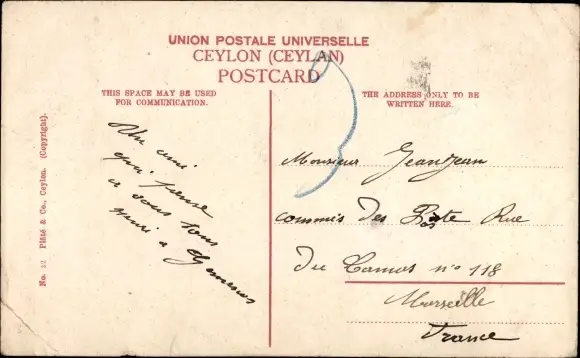 UNION POSTALE UNIVERSELLE
CEYLON (CEYLAN)
POSTCARD
THIS SPACE MAY BE USED
FOR COMMUNICATION.
THE ADDRESS ONLY TO BE
WRITTEN HERE.
No. 12 Plâté & Co., Ceylon. (Copyright).
Un ami
qui pense
a vous tous
Henri a
Monsieur Jeantjean
commis des Poste Rue
Du Camas n° 118
Marseille
France